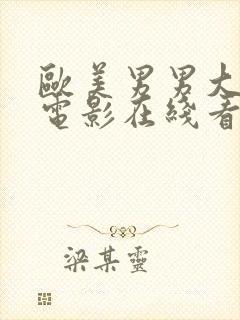 歐美男男大
電影在綫看
梁某靈